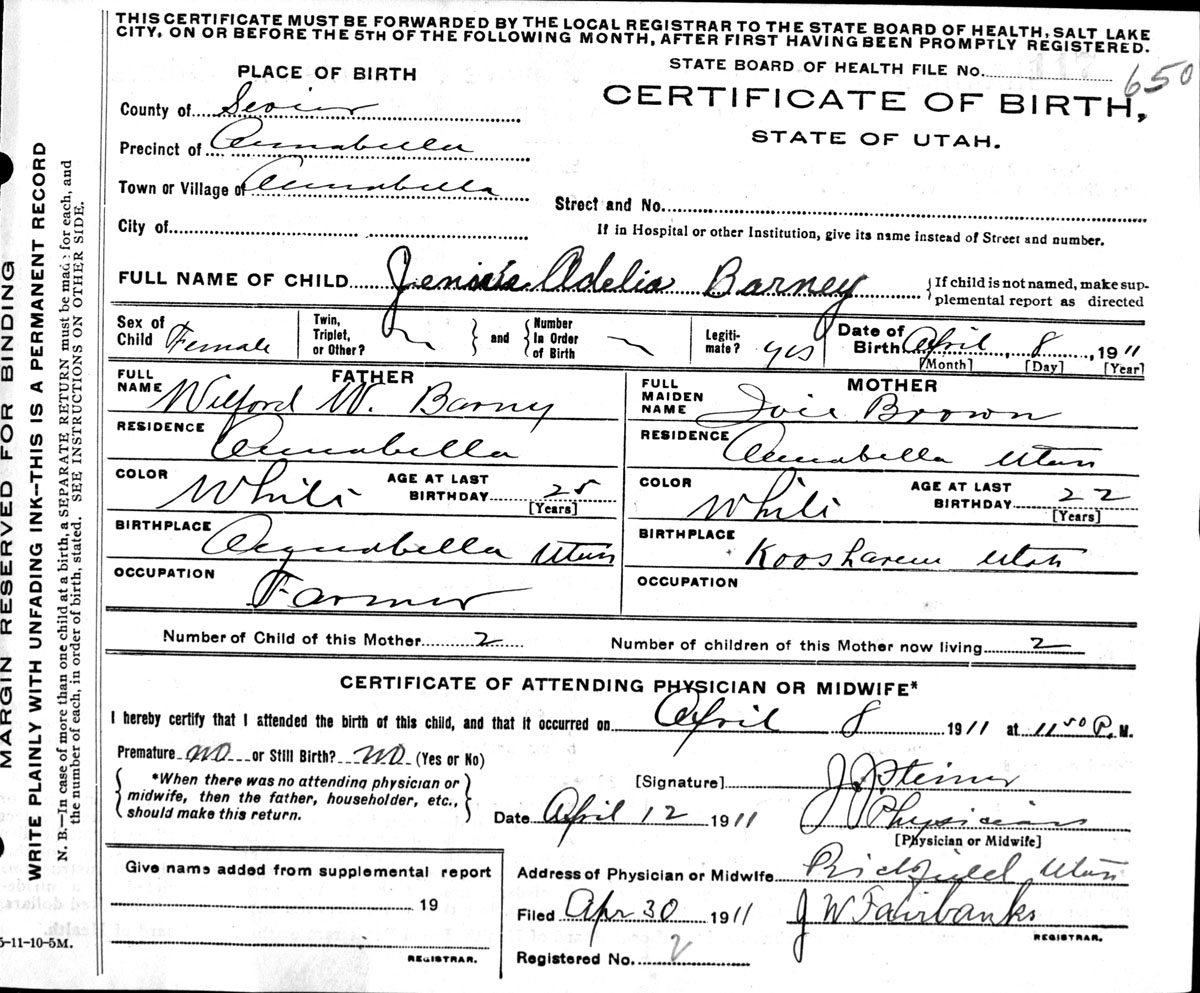 THIS CERTIFICATE MUST BE FORWARDED BY THE LOCAL REGISTRAR TO THE STATE BOARD OF HEALTH, SALT LAKE
CITY, ON OR BEFORE THE 5TH OF THE FOLLOWING MONTH, AFTER FIRST HAVING BEEN PROMPTLY REGISTERED.
STATE BOARD OF HEALTH FILE No. 650
PLACE OF BIRTH
CERTIFICATE OF BIRTH,
STATE OF UTAH.
County of Sevier
Precinct of Annabella
Town or Village of Annabella
Street and No.
City of
If in Hospital or other Institution, give its name instead of Street and number.
FULL NAME OF CHILD Adelia Barney
If child is not named, make sup-
plemental report as directed
Sex of Child Female
Twin, Triplet, or Other?
and
Number In Order of Birth
Legiti-mate? yes
Date of Birth April 8, 1911
[Month] [Day] [Year]
FATHER
FULL NAME Wilford W. Barny
RESIDENCE Annabella
COLOR White
AGE AT LAST BIRTHDAY 25
[Years]
BIRTHPLACE Annabella Utah
OCCUPATION Farmer
MOTHER
FULL MAIDEN NAME Ivie Brown
RESIDENCE Annabella Utah
COLOR White
AGE AT LAST BIRTHDAY 22
[Years]
BIRTHPLACE Koosharem Utah
OCCUPATION
Number of Child of this Mother 2
Number of children of this Mother now living 2
CERTIFICATE OF ATTENDING PHYSICIAN OR MIDWIFE*
I hereby certify that I attended the birth of this child, and that it occurred on April 8 1911 at 11 50 P. M.
Premature no or Still Birth? no (Yes or No)
*When there was no attending physician or
midwife, then the father, householder, etc.,
should make this return.
[Signature] J. J. Steiner
Date April 12 1911
Physician
[Physician or Midwife]
Give name added from supplemental report
19
REGISTRAR.
Address of Physician or Midwife Richfield Utah
Filed Apr 30 1911
J W Fairbanks
REGISTRAR.
Registered No. 2
5-11-10-5M.
MARGIN RESERVED FOR BINDING
WRITE PLAINLY WITH UNFADING INK—THIS IS A PERMANENT RECORD
N. B.—In case of more than one child at a birth, a SEPARATE RETURN must be made for each, and
the number of each, in order of birth, stated. SEE INSTRUCTIONS ON OTHER SIDE.